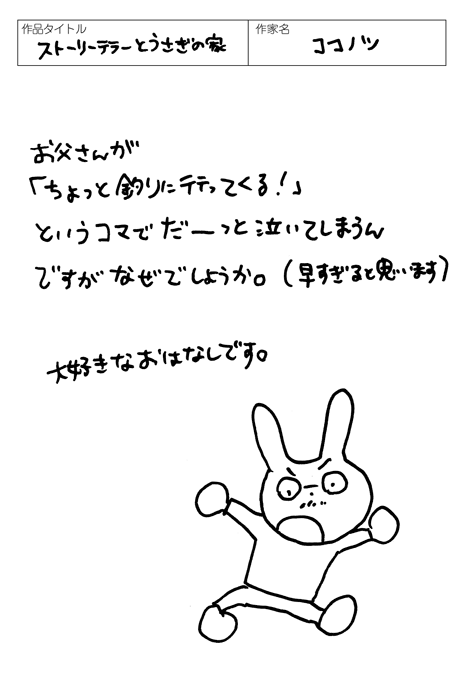 作品タイトル
ストーリーテラーとうさぎの家
作家名
ココノツ
お父さんが
「ちょっと釣りに行ってくる！」
というコマでだーっと泣いてしまうん
ですがなぜでしょうか。（早すぎると思います）
大好きなおはなしです。